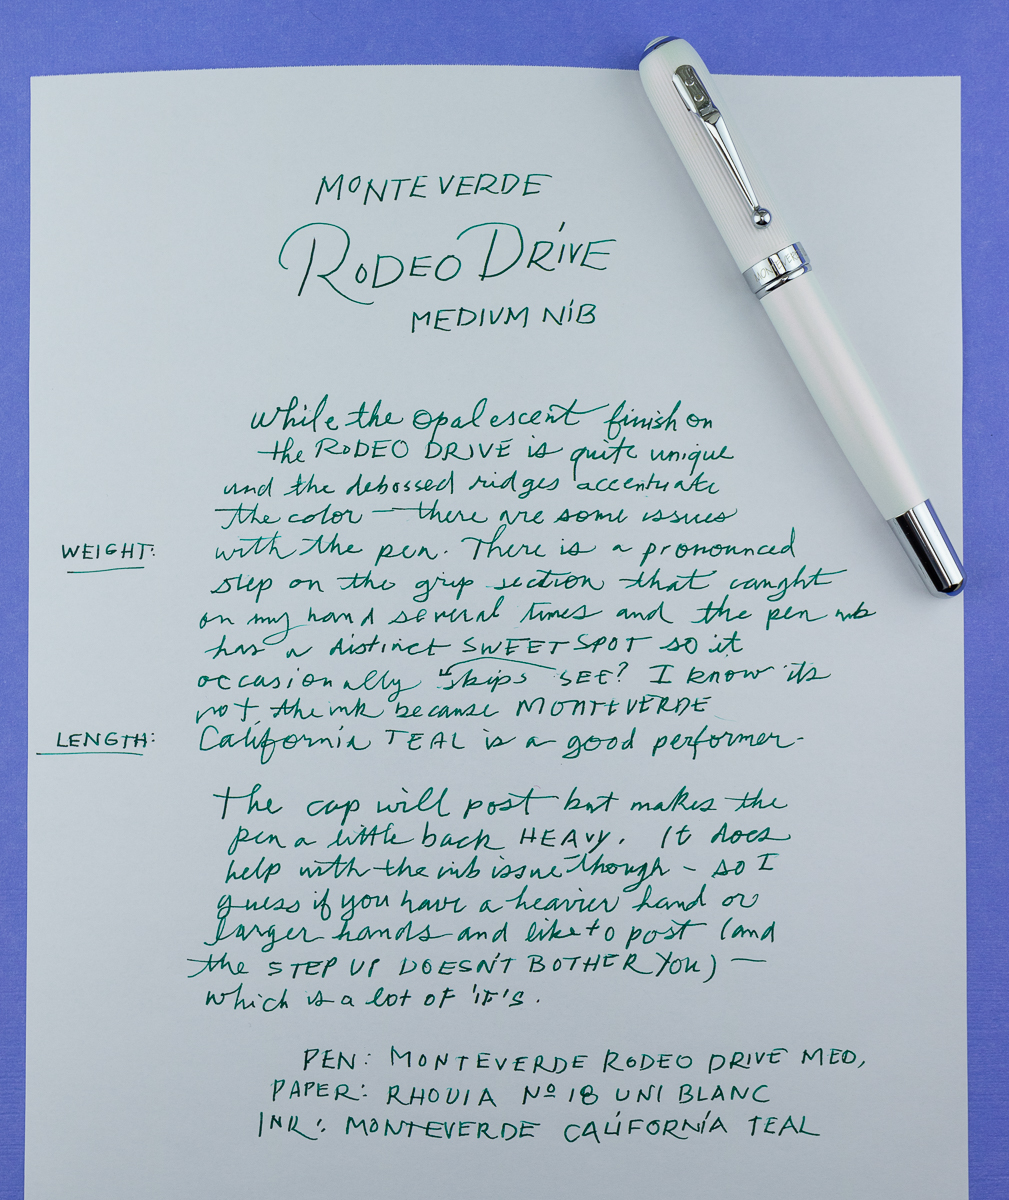 MONTEVERDE
RODEO DRIVE
MEDIUM NIB
While the opalescent finish on
the RODEO DRIVE is quite unique
and the debossed ridges accentuate
the color — there are some issues
WEIGHT: with the pen. There is a pronounced
step on the grip section that caught
on my hand several times and the pen nib
has a distinct SWEET SPOT so it
occasionally skips SEE? I know its
not the ink because MONTEVERDE
LENGTH: California TEAL is a good performer-
The cap will post but makes the
pen a little back HEAVY. It does
help with the nib issue though - so I
guess if you have a heavier hand or
larger hands and like to post (and
the STEP UP DOESN'T BOTHER YOU) —
which is a lot OF 'IF'S.
PEN: MONTEVERDE RODEO DRIVE MED,
PAPER: RHODIA Nº 18 UNI BLANC
INK: MONTEVERDE CALIFORNIA TEAL
MONTEVERDE